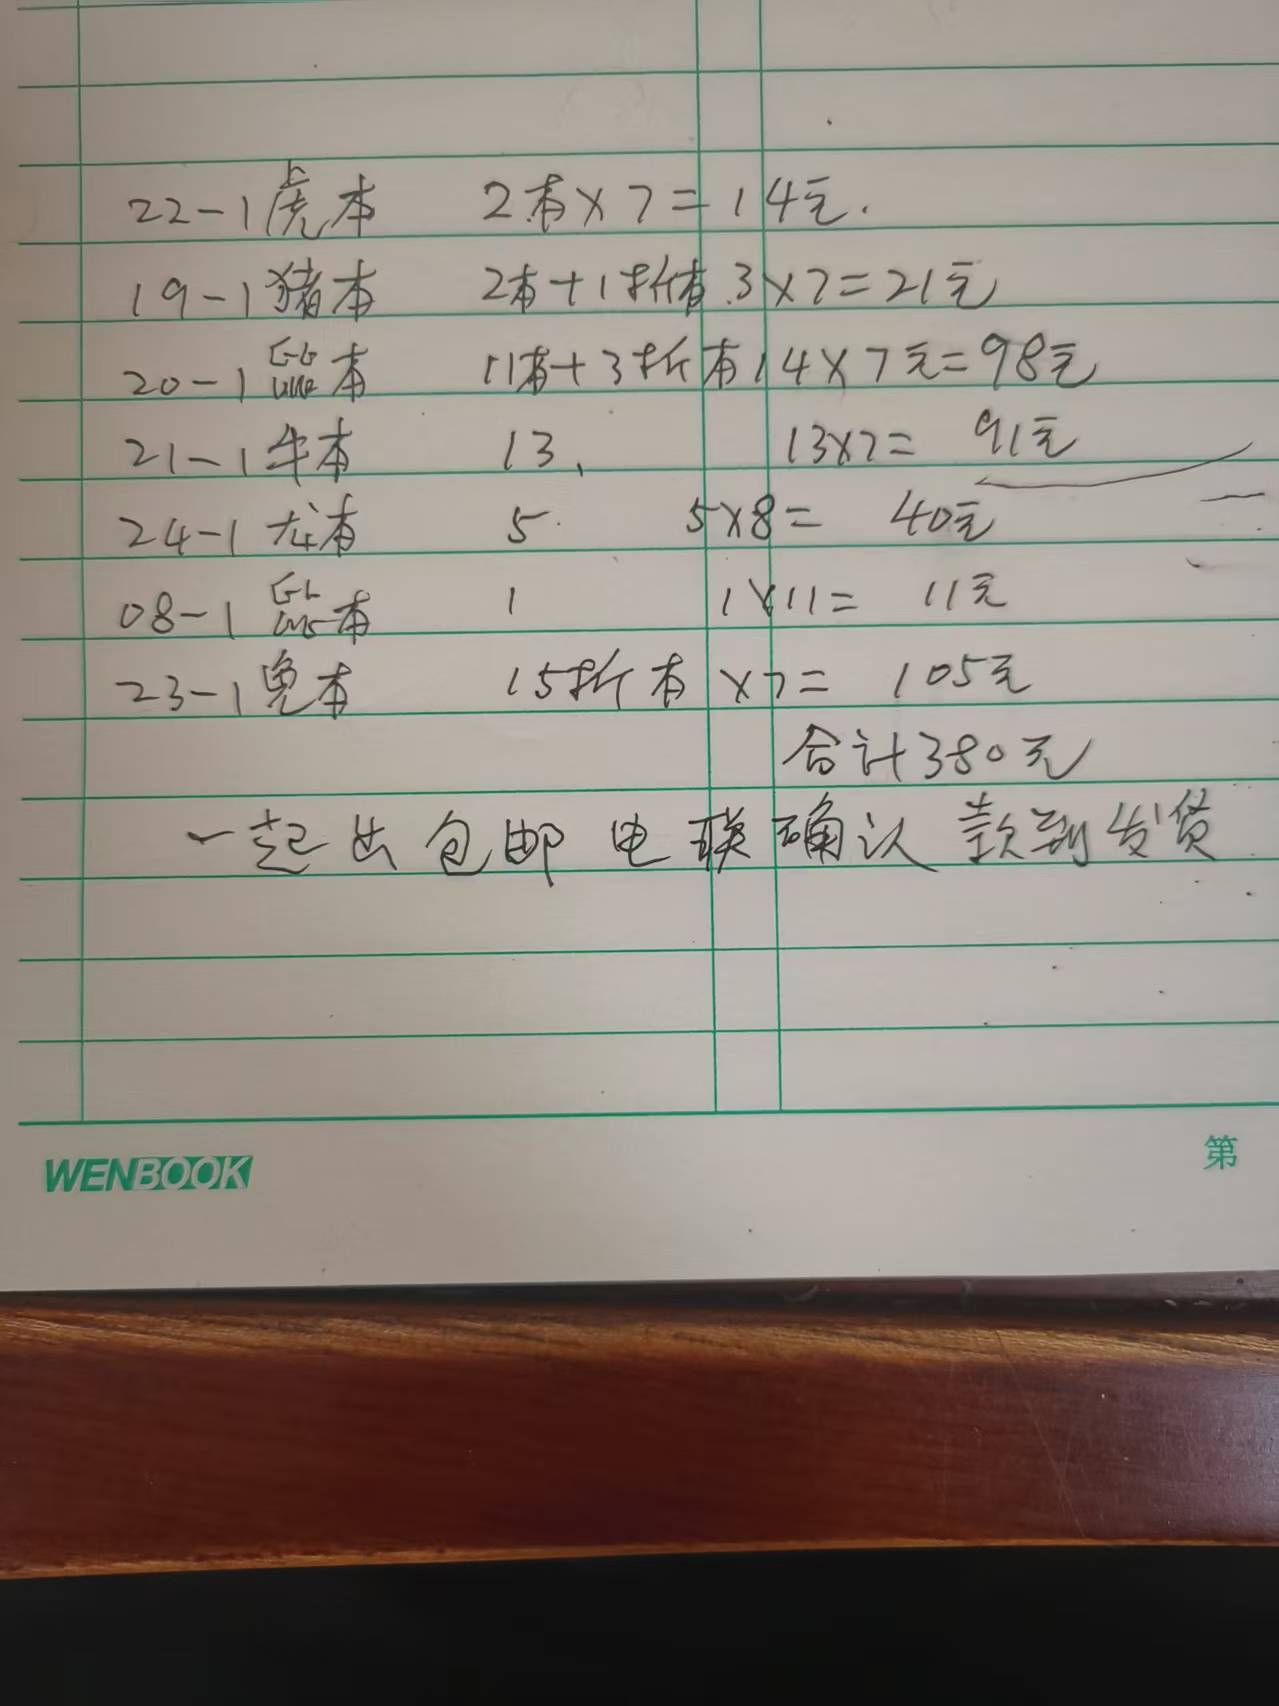 22-1虎本 2本×7=14元.
19-1猪本 2本+1折本 3×7=21元
20-1鼠本 11本+3折本 14×7元=98元
21-1牛本 13、 13×7= 91元
24-1龙本 5. 5×8= 40元
08-1鼠本 1 1×11= 11元
23-1兔本 15折本 ×7= 105元
合计380元
一起出包邮 电联确认 款到发货
WENBOOK
第